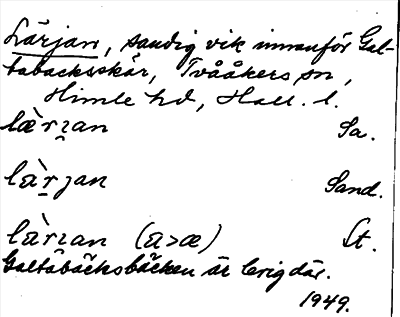 Lärjan, sandig vik innanför Gal-
tabacksskär, Tvååkers sn,
Himle hd, Hall. l.
læ̀rɿan Sa.
là̱rȷan Sand.
làrɿan (a>æ) St.
Galtabäcksbäcken är lerig där.
1949.